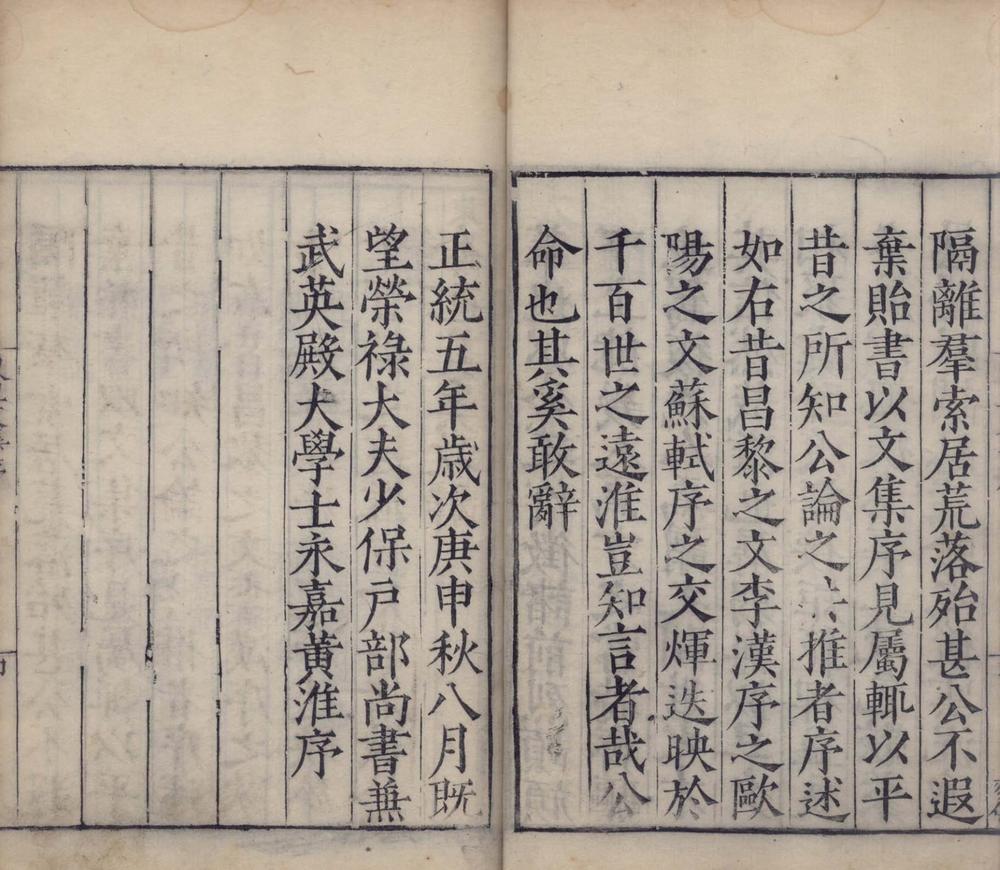 隔離羣索居荒落殆甚公不遐
棄貽書以文集序見屬輒以平
昔之所知公論之共推者序述
如右昔昌黎之文李漢序之歐
陽之文蘇軾序之交煇迭映於
千百世之遠淮豈知言者哉公
命也其奚敢辭
正統五年歳次庚申秋八月既
望榮祿大夫少保戸部尚書兼
武英殿大學士永嘉黃淮序